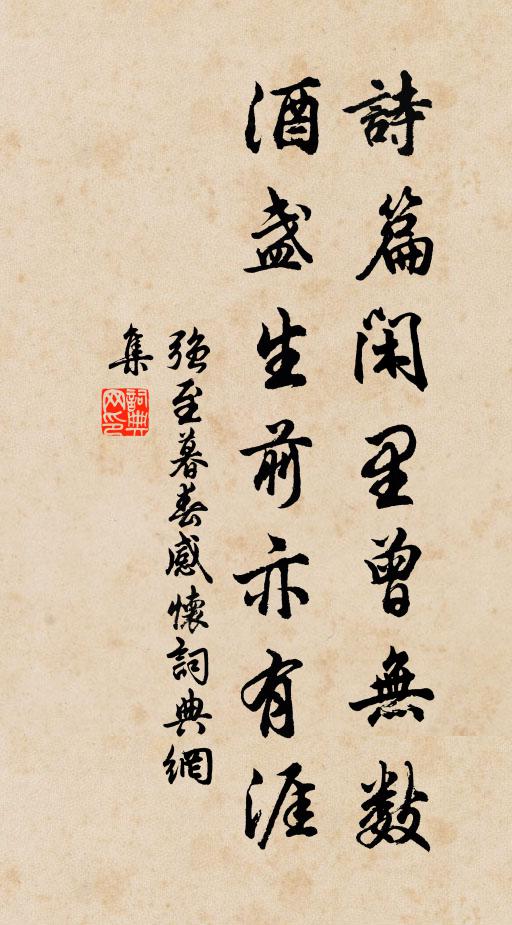 詩篇閑里曾無數
酒盞生前亦有涯
強至暮春感懷詞典網
集
詞典
网印